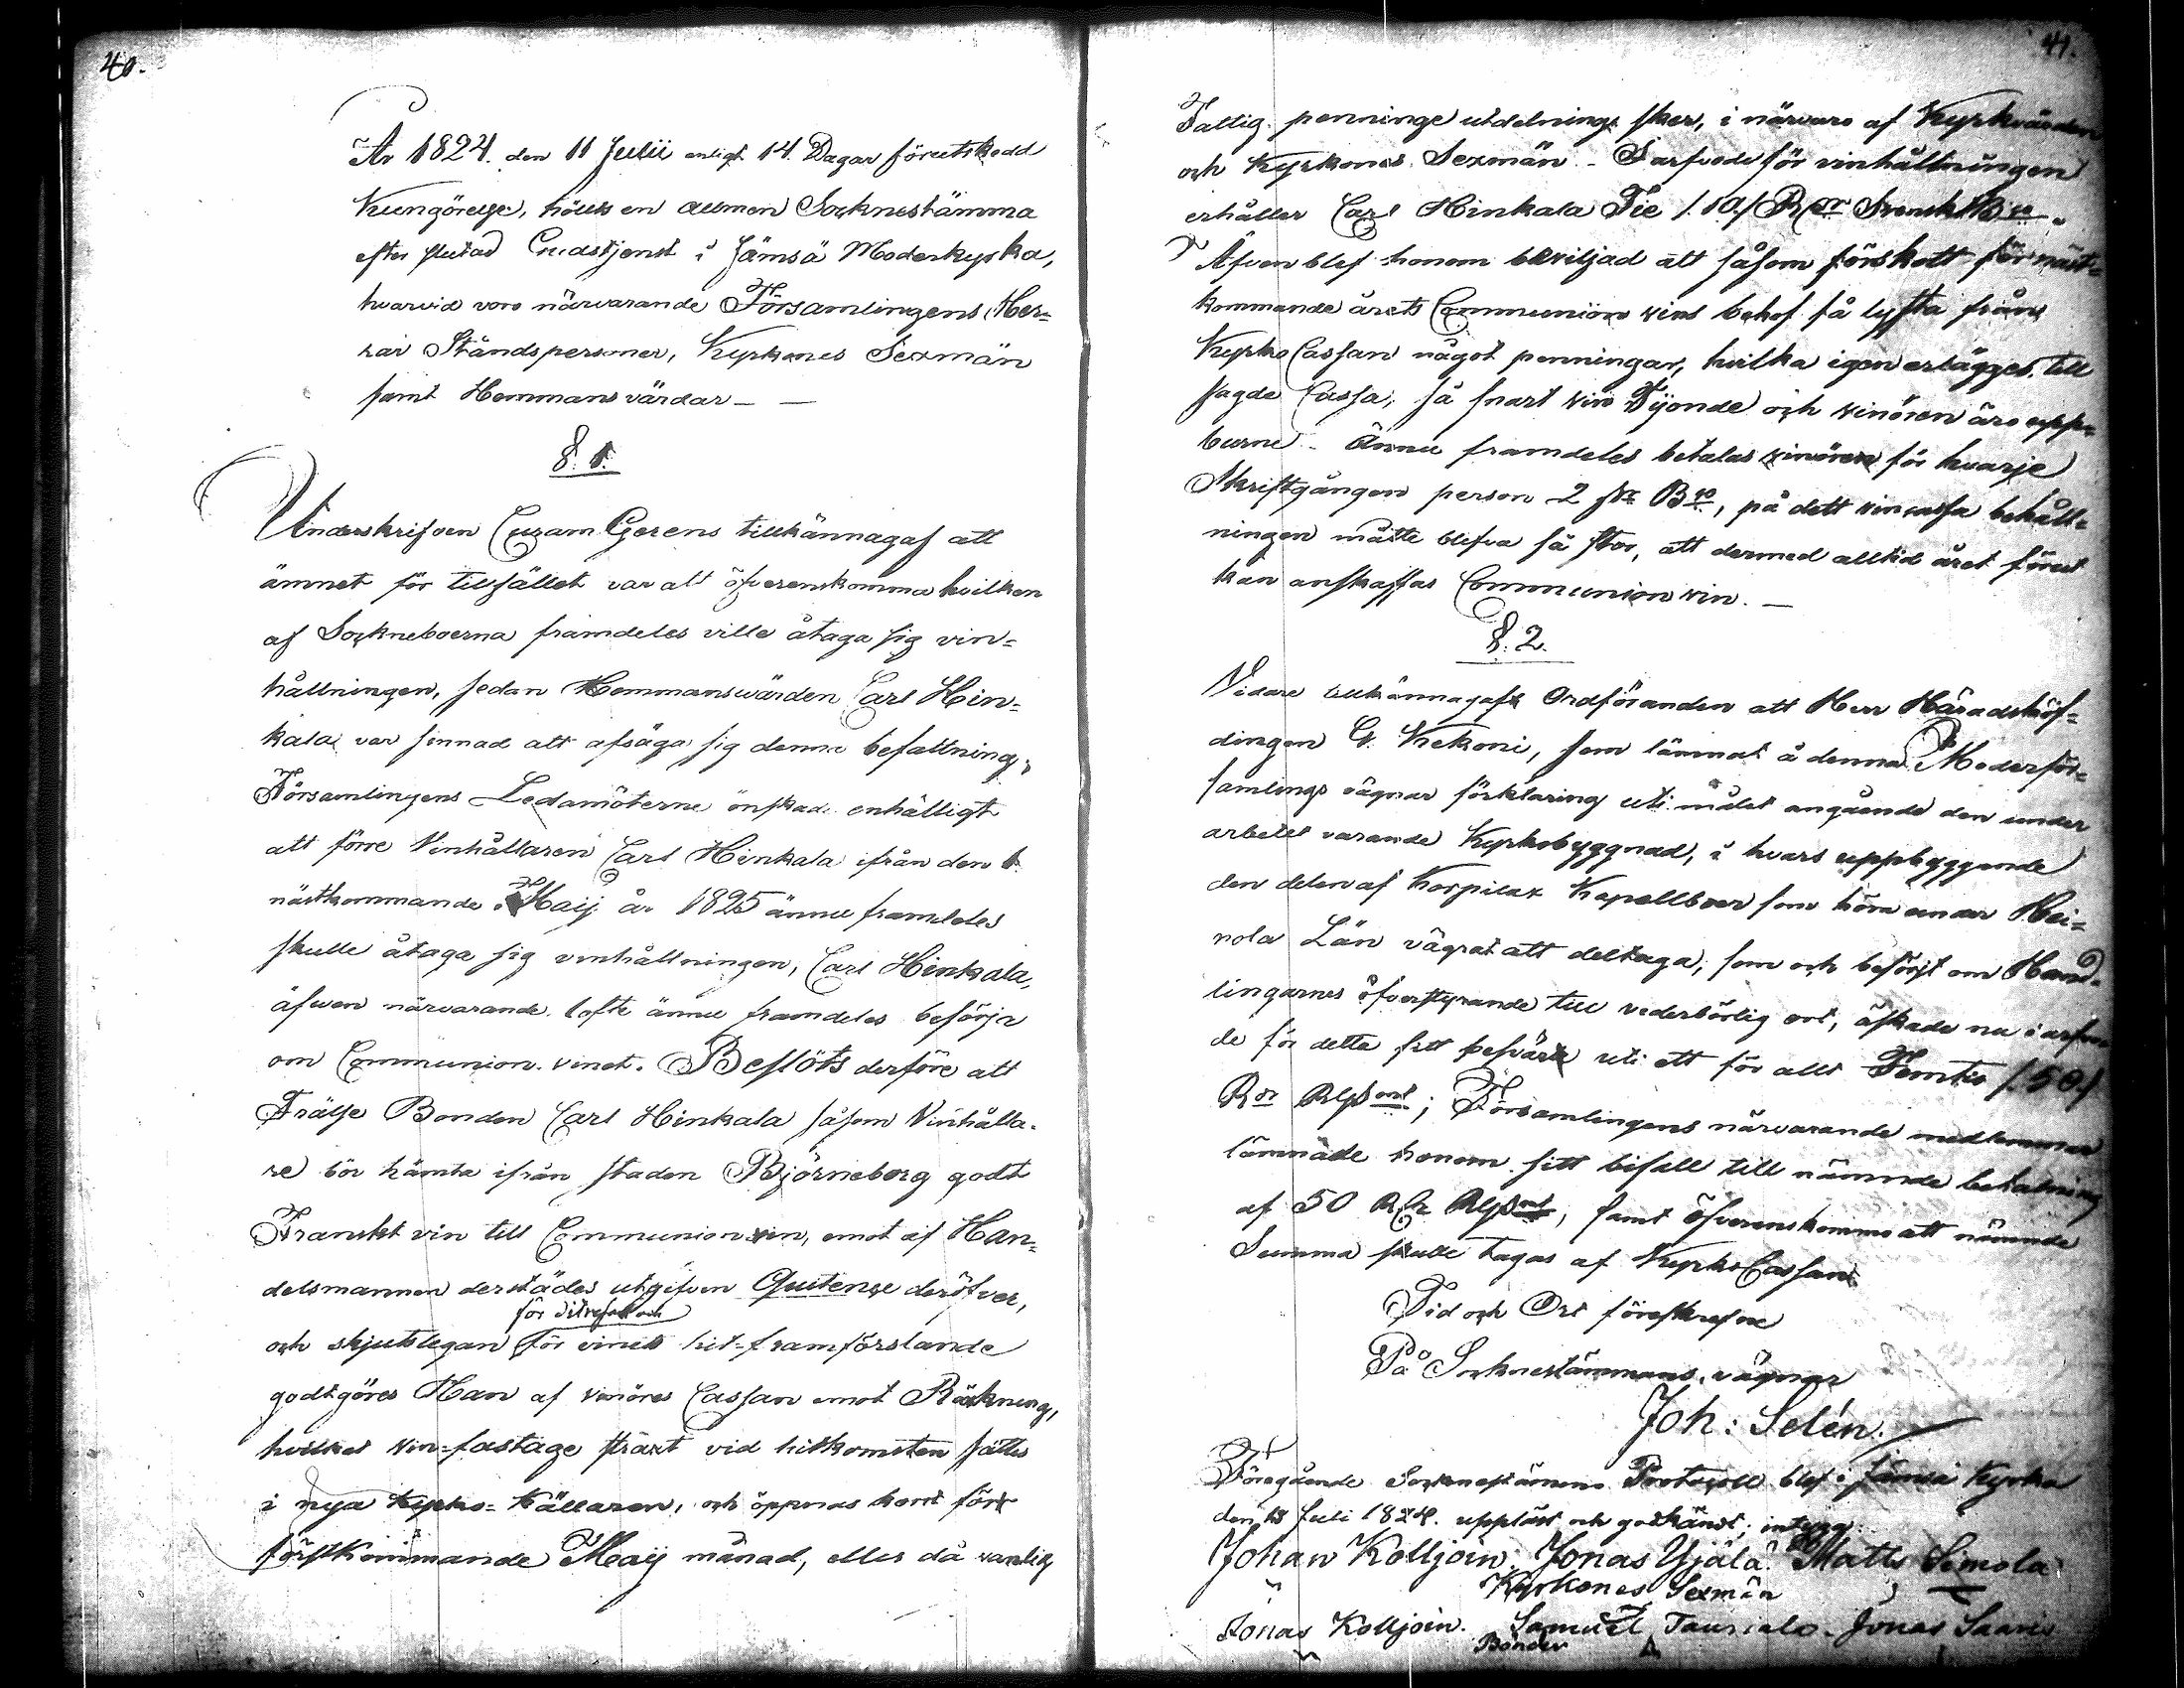 40.
År 1824. den 11 Julii enligt 14. Dagar förutskedd
Kungörelse, hölts en allmen Socknestämma
efter slutad Gudstjenst i Jämsä Moderkyrka,
hvarvid voro närvarande Församlingens Her-
rar Ståndspersoner, Kyrkones Sexmän
samt Hemmansvärdar —
§. 1.
Underskrifven Curam Gerens tillkännagaf att
ämnet för tillfället var att öfverenskomma hvilken
af Sockneboerna framdeles ville åtaga sig vin-
hållningen, sedan Hemmanswärden Carl Hin-
kala var sinnad att afsäga sig denne befattning,
Församlingens Ledamöterne önskade enhälligt
att förre Vinhållaren Carl Hinkala ifrån den 1.
nästkommande Maij år 1825 ännu framdeles
skulle åtaga sig vinhållningen, Carl Hinkala,
äfwen närvarande lofte ännu framdeles besörja
om Communion vinet. Beslöts derföre att
Frälse Bonden Carl Hinkala såsom Vinhålla-
re bör hämta ifrån staden Björneborg godt
Franskt vin till Communion vin, emot af Han-
delsmannen derstädes utgifven Quitense deröfver,
för ditresan och
och skjutslegan för vinets hit-framförslande
godtgöres Han af vinöres Cassan emot Räkning,
hvilket vin-fastage straxt vid hitkomsten sättes
i nya Kyrko-Källaren, och öppnas horst förr
förstkommande Maij månad, eller då vanlig
41.
Fattig penninge utdelninge sker, i närvaro af Kyrkvärden
och Kyrkones Sexmän - I arfvode för vinhållningen
erhåller Carl Hinkala Tie /.10./ R:dr Svensk B:co.
Äfven blef honom beviljad att såsom förskott för näst-
kommande årets Communions vins behof få lyfta från
Kyrko Cassan något penningar, hvilka igen erlägges till
sagde Cassa, så snart vin Tijonde och vinören äro upp-
burne - Ännu framdeles betalas vinören för hvarje
Skriftgången person 2 sk B:co, på dett vin cassa behåll-
ningen måtte blifva så stor, att dermed alltid året förut
kan anskaffas Communion vin. —
§. 2.
Vidare tillkännagaf Ordföranden att Herr Häradshöf-
dingen G. Kekoni, som lämnat å denna Moderför-
samlings vägnar förklaring uti målet angående den under
arbetet varande Kyrkobyggnad, i hvars uppbyggande
den delen af Korpilax Kapellboer som höra under Hei-
nola Län vägrat att deltaga, som och besörjt om Hand-
lingarnes öfverstyrande till vederbörlig ort, äskade nu i arfvo-
de för detta sitt besvär uti ett för allt Femtio /.50./
R:dr Rgs mt; Församlingens närvarande medlemmar
lämnade honom sitt bifall till nämnde betalning
af 50 Rdr Rgs mt, samt öfverenskommo att nämnde
Summa skulle tagas af Kyrko Cassan
Tid och Ort föreskrefne
På Socknestämmans vägnar
Joh: Selén.
Föregående Socknestämmo Protocoll blef i Jämsä Kyrka
den 18 Juli 1824. uppläst och godkänst; intyga:
Johan Kolljoin. Jonas Yjälä. Matts Simola
Kyrkones Sexmän
Jonas Kolljoin. Samuel Taurialo. Jonas Saaris
Bönder